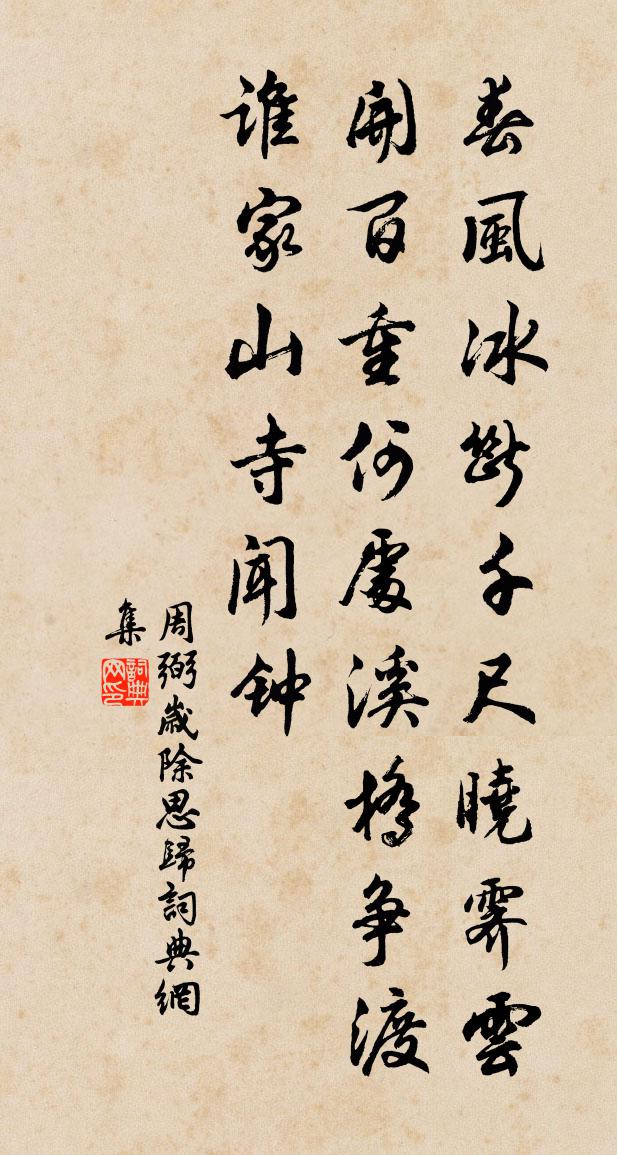 春風冰斷千尺曉霽雲
開百重何處溪橋争渡
誰家山寺聞钟
周弼歲除思歸詞典網
集
詞典网印